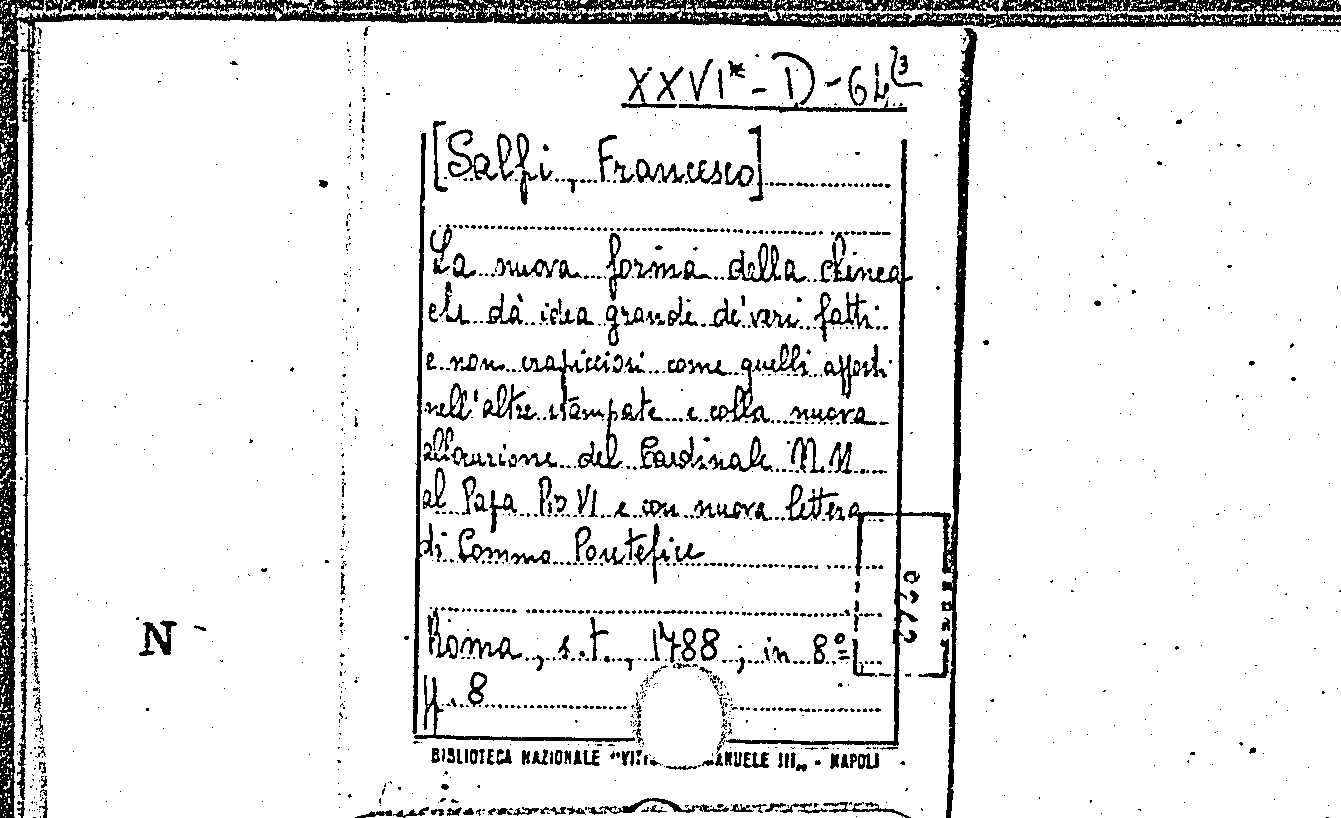 XXVI* - D - 64(3
[Salfi, Francesco]
La nuova forma della chinea
che dà idea grande de' veri fatti
e non crapicciosi come quelli apposti
nell'altre stampate e colla nuova
allocuzione del Cardinale N.N.
al Papa Pio VI e con nuova lettera
di Commo Pontefice
Roma, s.t., 1788; in 8º
pp. 8
BIBLIOTECA NAZIONALE "VITT ANUELE III" - NAPOLI
N